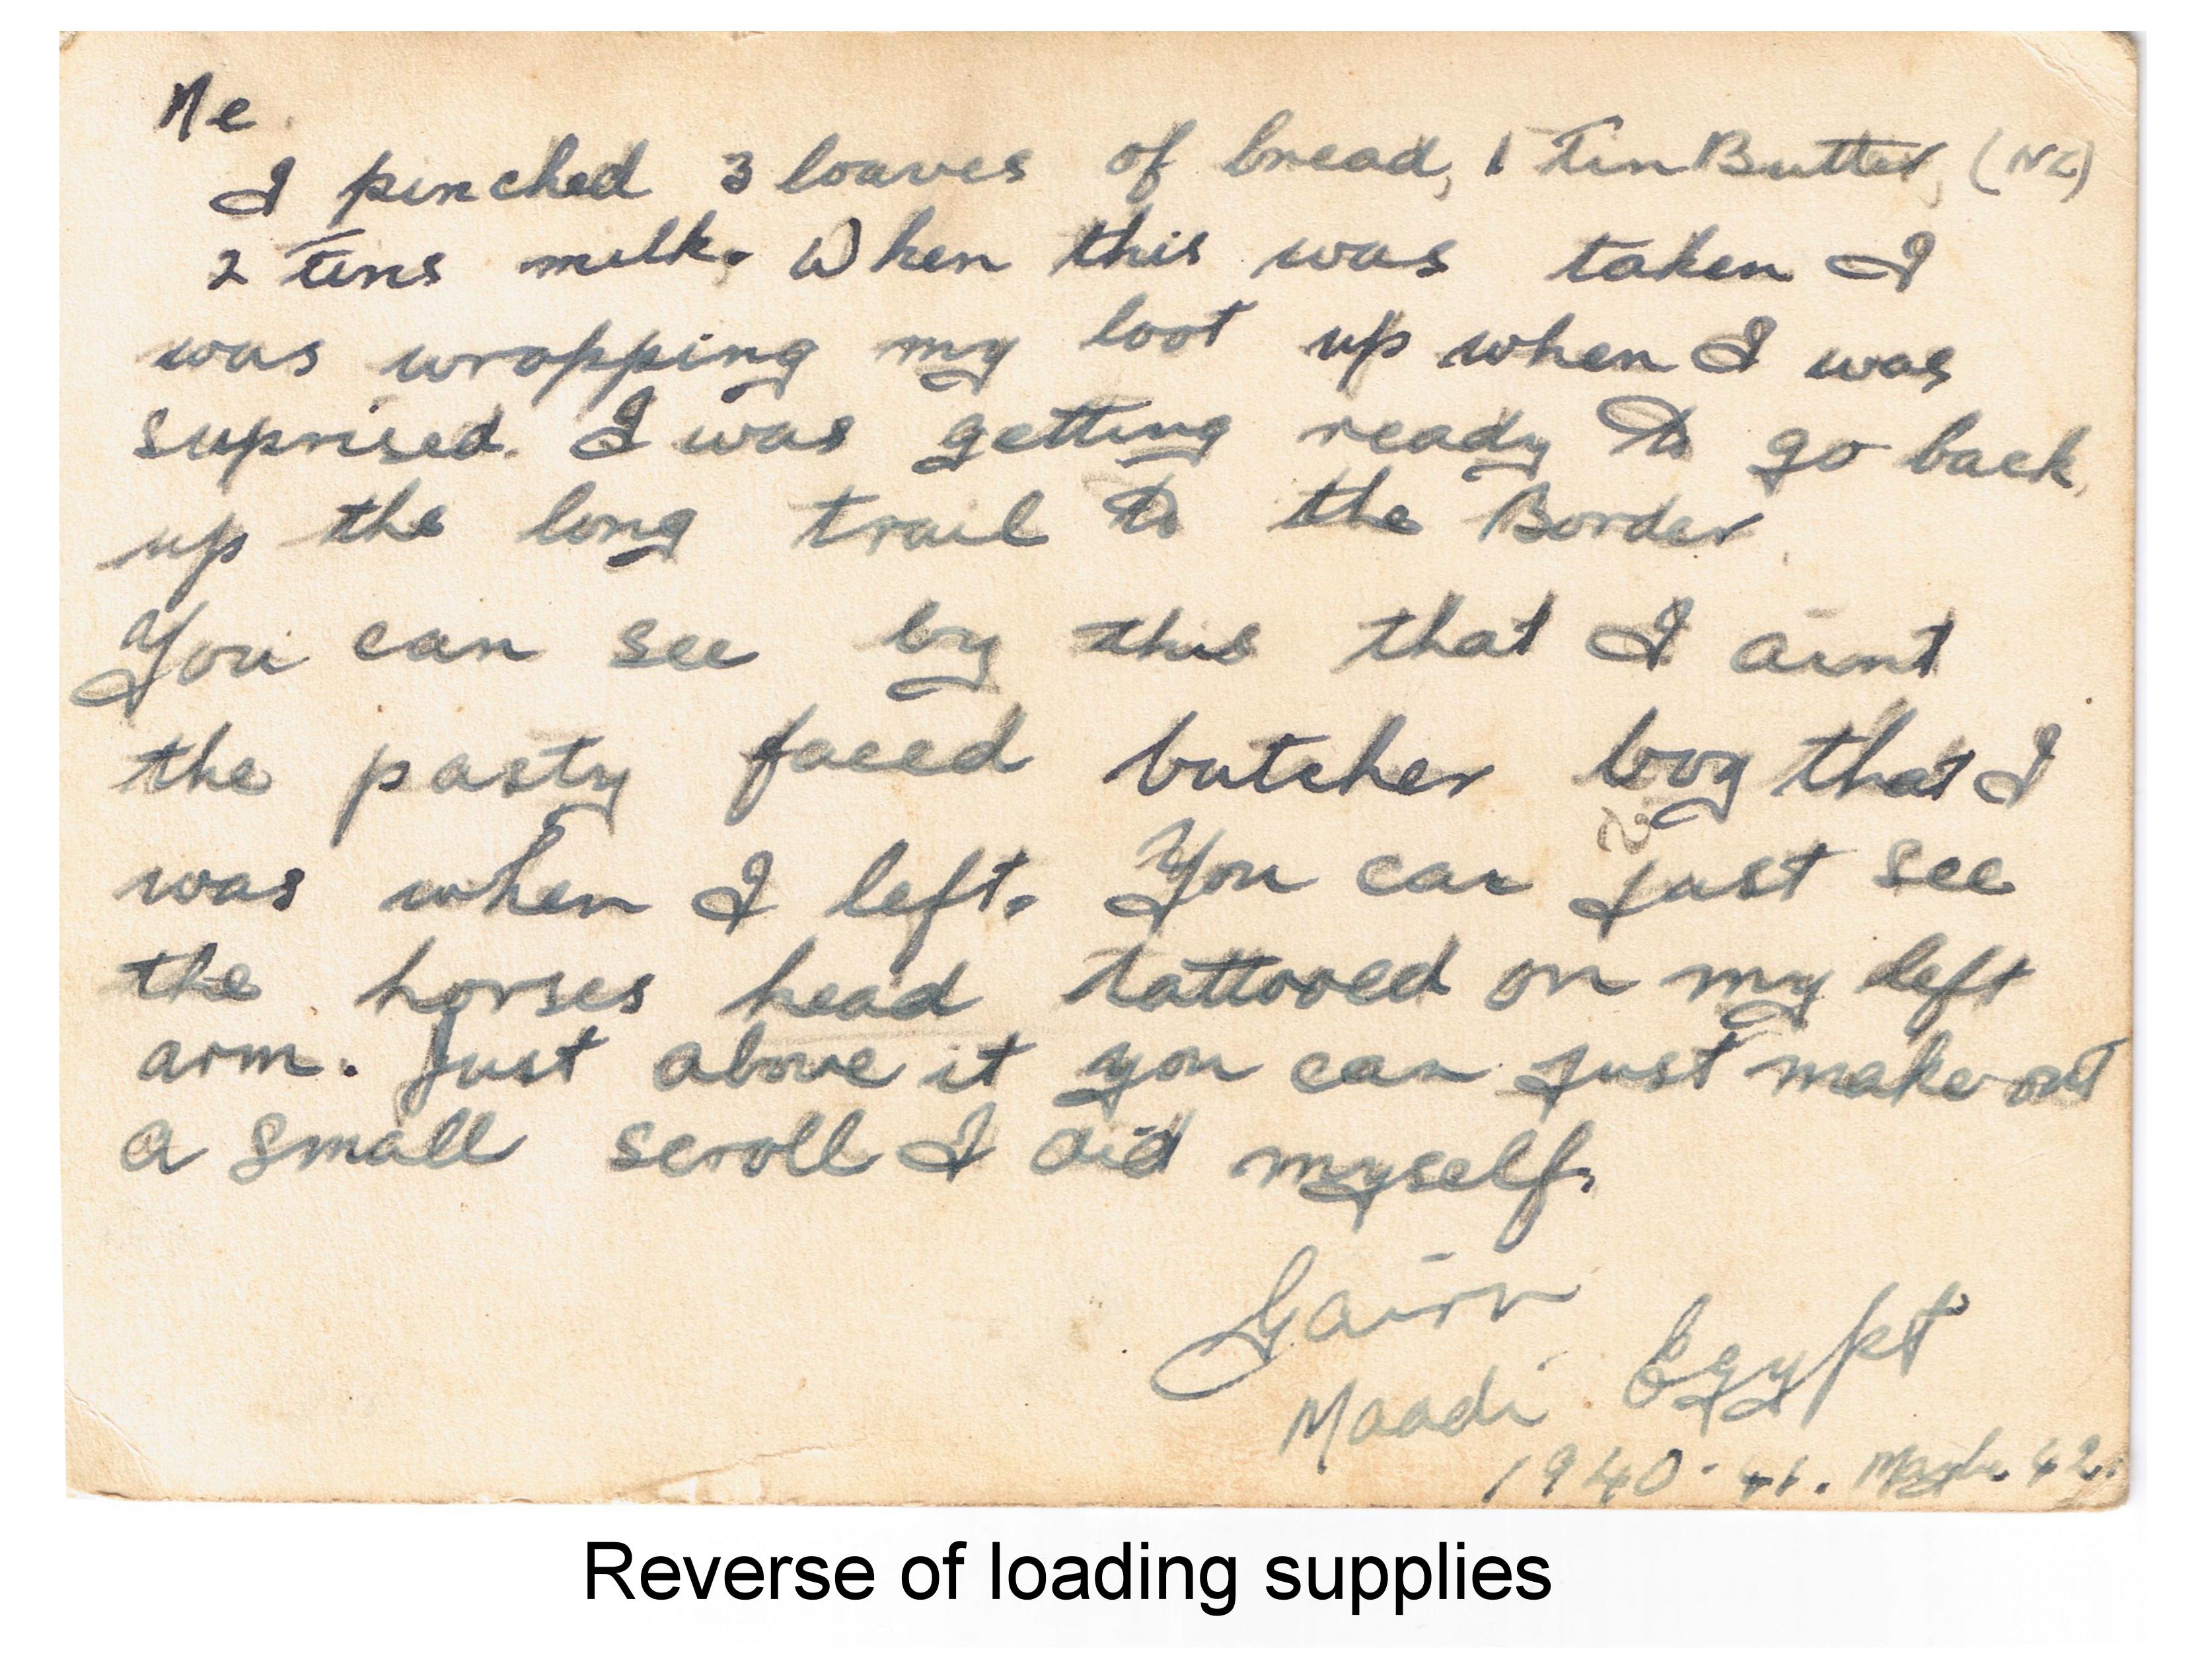 Me.
I pinched 3 loaves of bread, 1 Tin Butter, (NZ)
2 Tins milk. When this was taken I
was wrapping my loot up when I was
suprised. I was getting ready to go back
up the long trail to the Border.
You can see by this that I aint
the pasty faced butcher boy that I
was when I left. You can just see
the horses head tattooed on my left
arm. Just above it you can just make out
a small scroll I did myself.
Gairn
Maadi Egypt
1940-41. Maybe 42.
Reverse of loading supplies